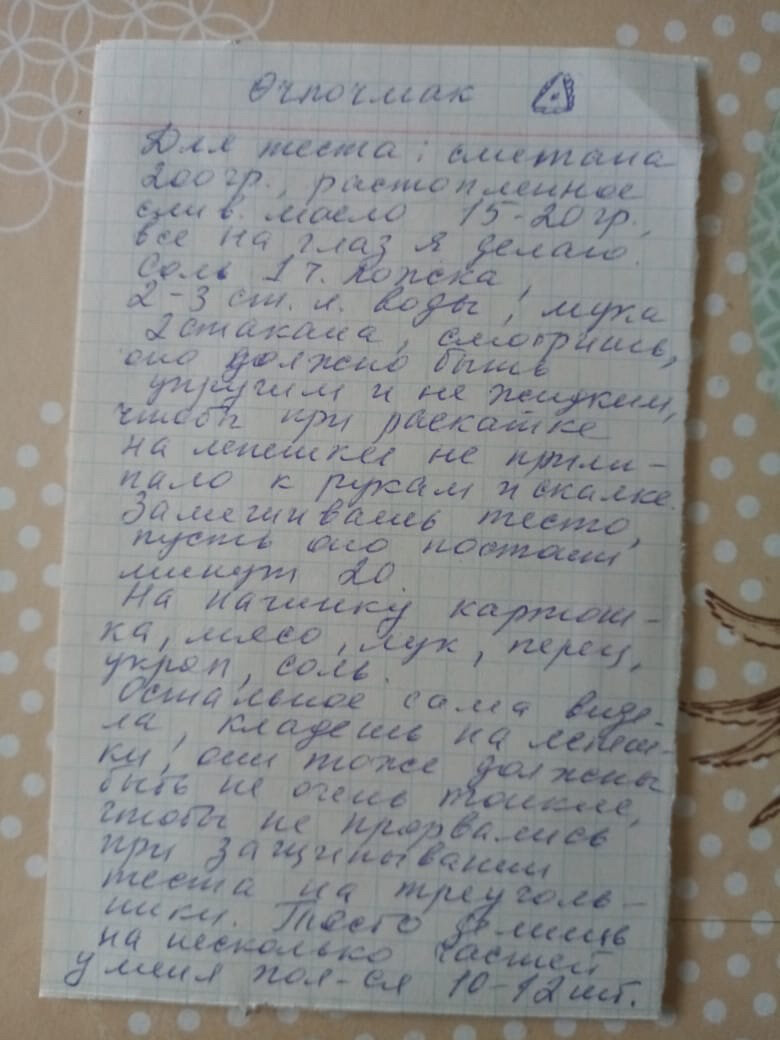 Очпочмак
Для теста: сметана
200 гр., растопленное
слив. масло 15-20 гр.,
все на глаз я делаю.
Соль 1 ч. ложка,
2-3 ст. л. воды, мука
2 стакана, смотришь,
оно должно быть
упругим и не жидким,
чтобы при раскатке
на лепешки не прили-
пало к рукам и скалке.
Замешиваешь тесто,
пусть оно постоит
минут 20.
На начинку картош-
ка, мясо, лук, перец,
укроп, соль.
Остальное сама виде-
ла, кладешь на лепеш-
ки, они тоже должны
быть не очень тонкие,
чтобы не прорвались
при защипывании
теста на треуголь-
ники. Тесто делишь
на несколько частей
у меня пол-ся 10-12 шт.